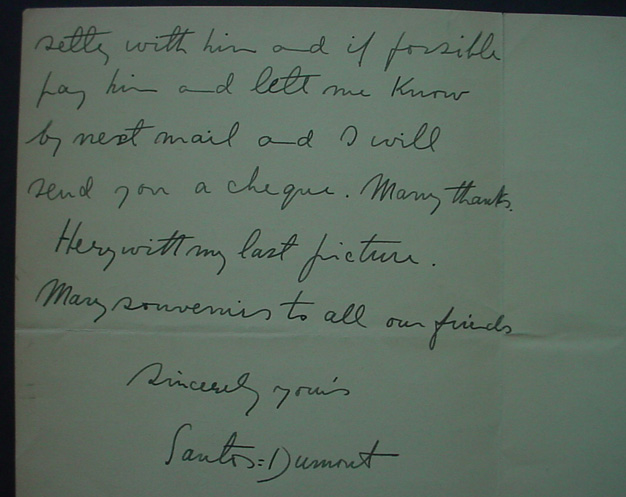 settly with him and if possible
pay him and lett me Know
by next mail and I will
send you a cheque. Many thanks.
Herywitt my last picture.
Many souvenirs to all our friends
Sincerely your's
Santos=Dumont